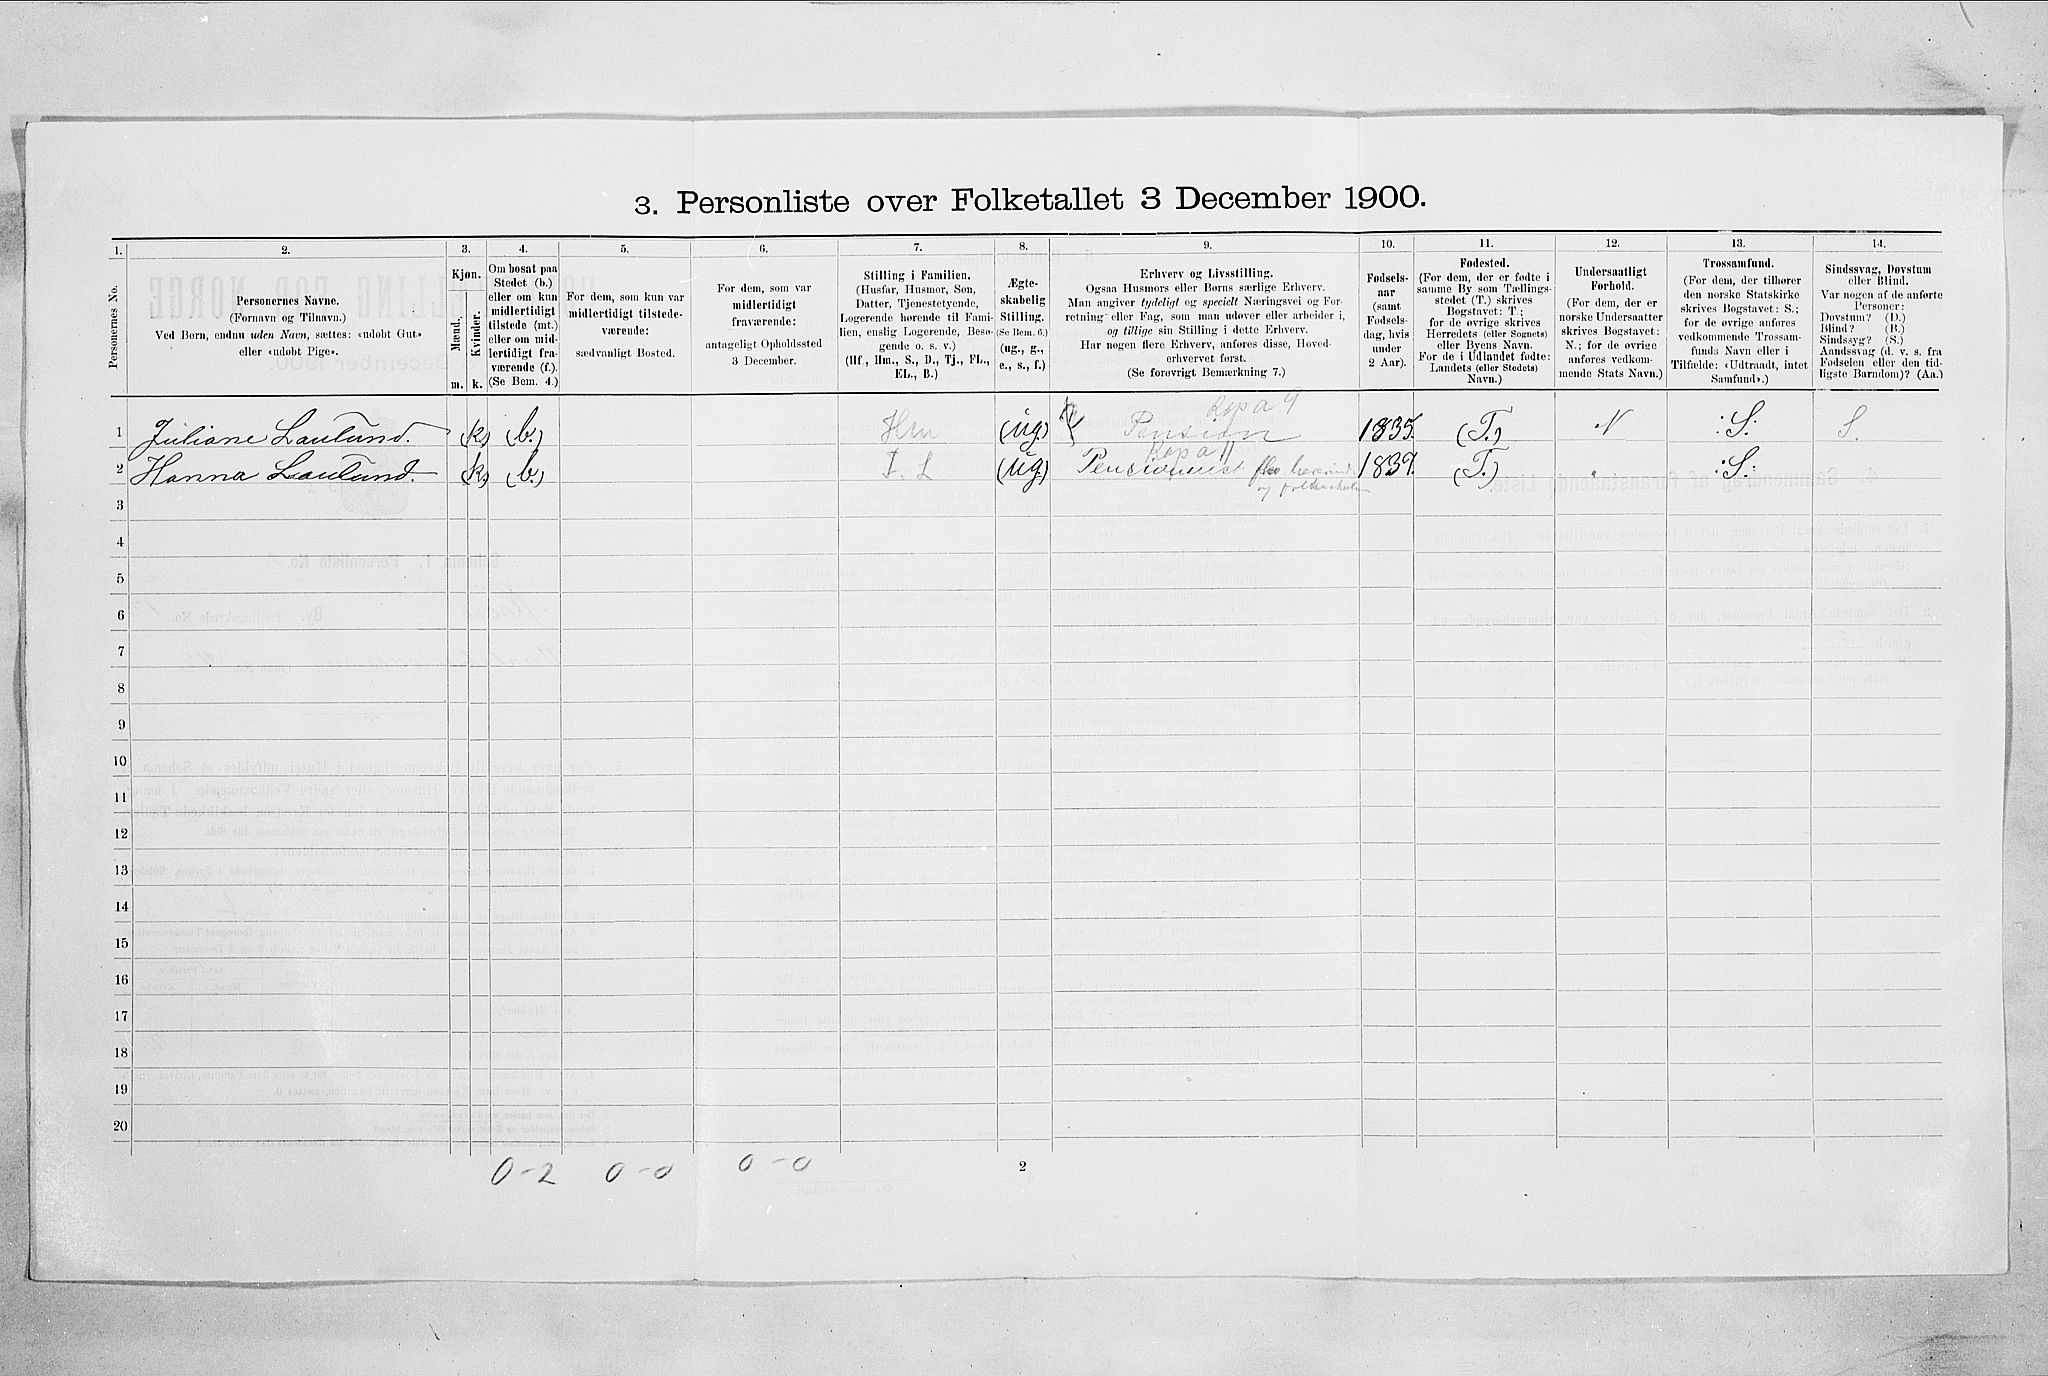 3. Personliste over Folketallet 3 December 1900.
1. 2. 3. 4. 5. 6. 7. 8. 9. 10. 11. 12. 13. 14.
Personernes No.
Personernes Navne.
(Fornavn og Tilnavn.)
Ved Børn, endnu uden Navn, sættes: «udøbt Gut»
eller «udøbt Pige».
Kjøn.
Mænd.
Kvinder.
m. k.
Om bosat paa
Stedet (b.)
eller om kun
midlertidigt
tilstede (mt.)
eller om mid-
lertidigt fra-
værende (f.)
(Se Bem. 4.)
For dem, som kun var
midlertidigt tilstede-
værende:
sædvanligt Bosted.
For dem, som var
midlertidigt
fraværende:
antageligt Opholdssted
3 December.
Stilling i Familien.
(Husfar, Husmor, Søn,
Datter, Tjenestetyende,
Logerende hørende til Fami-
lien, enslig Logerende, Besø-
gende o. s. v.)
(Hf., Hm., S., D., Tj., FL.,
EL., B.)
Ægte-
skabelig
Stilling.
(Se Bem. 6.)
(ug., g.,
e., s., f.)
Erhverv og Livsstilling.
Ogsaa Husmors eller Børns særlige Erhverv.
Man angiver tydeligt og specielt Næringsvei og For-
retning eller Fag, som man udøver eller arbeider i,
og tillige sin Stilling i dette Erhverv.
Har nogen flere Erhverv, anføres disse, Hoved-
erhvervet først.
(Se forøvrigt Bemærkning 7.)
Fødsels-
aar
(samt
Fødsels-
dag, hvis
under
2 Aar).
Fødested.
(For dem, der er fødte i
samme By som Tællings-
stedet (T.) skrives
Bogstavet: T.;
for de øvrige skrives
Herredets (eller Sognets)
eller Byens Navn.
For de i Udlandet fødte:
Landets (eller Stedets)
Navn.)
Undersaatligt
Forhold.
(For dem, der er
norske Undersaatter
skrives Bogstavet:
N.; for de øvrige
anføres vedkom-
mende Stats Navn.)
Trossamfund.
(For dem, der tilhører
den norske Statskirke
skrives Bogstavet: S.;
for de øvrige anføres
vedkommende Trossam-
funds Navn eller i
Tilfælde: «Udtraadt, intet
Samfund».)
Sindssvag, Døvstum
eller Blind.
Var nogen af de anførte
Personer:
Døvstum? (D.)
Blind? (B.)
Sindssyg? (S.)
Aandssvag (d. v. s. fra
Fødselen eller den tid-
ligste Barndom)? (Aa.)
Kop a 9
1 Juliane Laulund. (k) (b.) Hm (ug.) Pension 1835. (T.) N S. S.
Kop a 11
2 Hanna Laulund. (k) (b.) F. L (ug) Pensionnist 1837. (T.) " S.
3
4
5
6
7
8
9
10
11
12
13
14
15
16
17
18
19
20
0-2 0-0 0-0 2